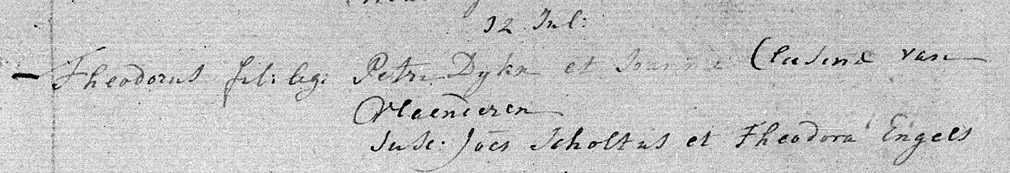 12 Jul:
Theodorus fil: leg: Petri Dykn et Joannæ Clasinæ van
Vlaenderen
Susc: Joes Scholtus et Theodora Engels